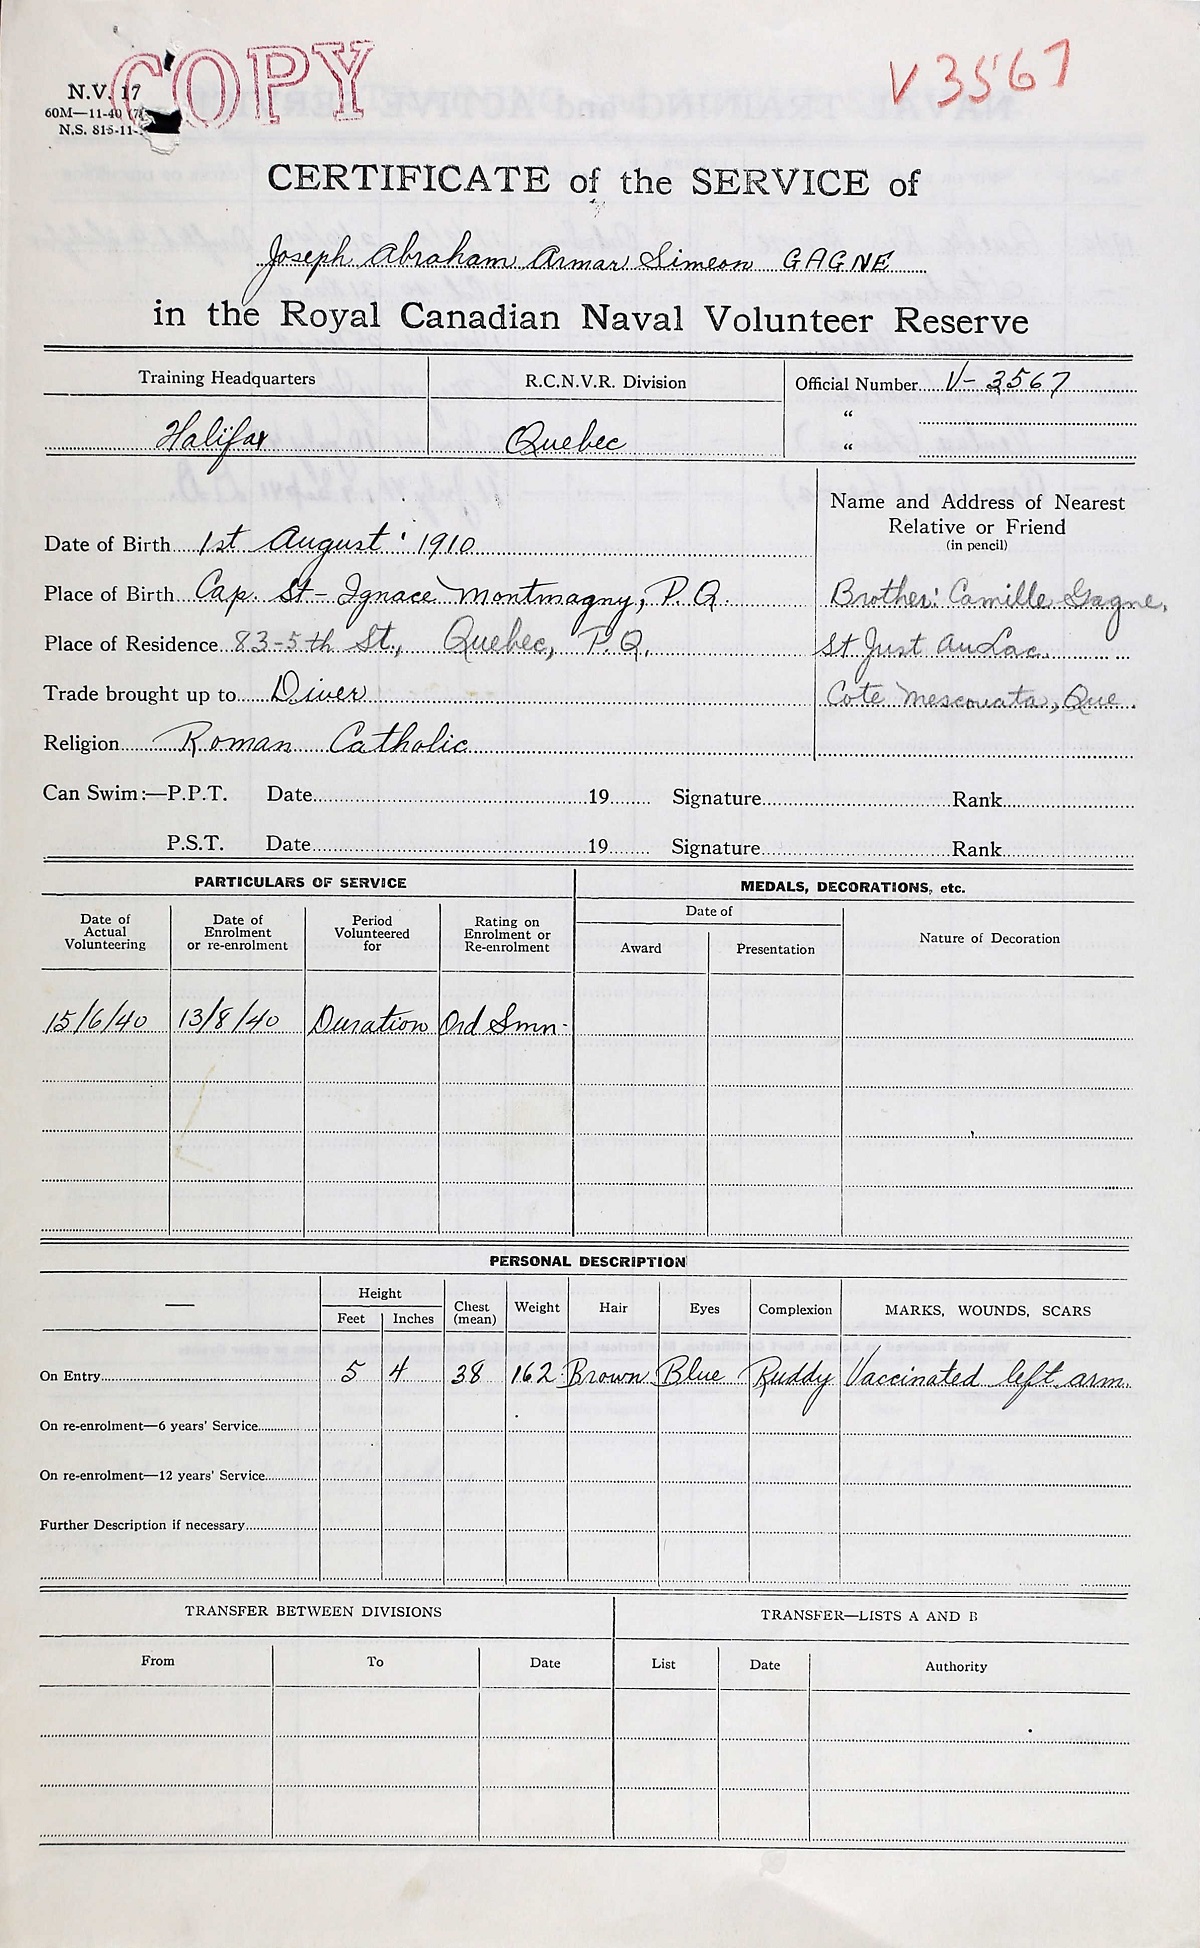 COPY
V3567
N.V. 17
60M—11-40
N.S. 815-11-
CERTIFICATE of the SERVICE of
Joseph Abraham Armar Simeon GAGNE
in the Royal Canadian Naval Volunteer Reserve
Training Headquarters R.C.N.V.R. Division Official Number V-3567
"
Halifax Quebec "
Name and Address of Nearest
Relative or Friend
(in pencil)
Date of Birth 1st August 1910
Place of Birth Cap. St-Ignace Montmagny, P.Q. Brother: Camille Gagne,
Place of Residence 83-5th St., Quebec, P.Q. St Just Au Lac
Trade brought up to Diver Cote Mescouata, Que.
Religion Roman Catholic
Can Swim:—P.P.T. Date 19 Signature Rank
P.S.T. Date 19 Signature Rank
PARTICULARS OF SERVICE MEDALS, DECORATIONS, etc.
Date of Actual Volunteering Date of Enrolment or re-enrolment Period Volunteered for Rating on Enrolment or Re-enrolment Date of
Award Presentation Nature of Decoration
15/6/40 13/8/40 Duration Ord Smn-
PERSONAL DESCRIPTION
— Height Chest (mean) Weight Hair Eyes Complexion MARKS, WOUNDS, SCARS
Feet Inches
On Entry 5 4 38 162 Brown Blue Ruddy Vaccinated left arm.
On re-enrolment—6 years' Service
On re-enrolment—12 years' Service
Further Description if necessary
TRANSFER BETWEEN DIVISIONS TRANSFER—LISTS A AND B
From To Date List Date Authority